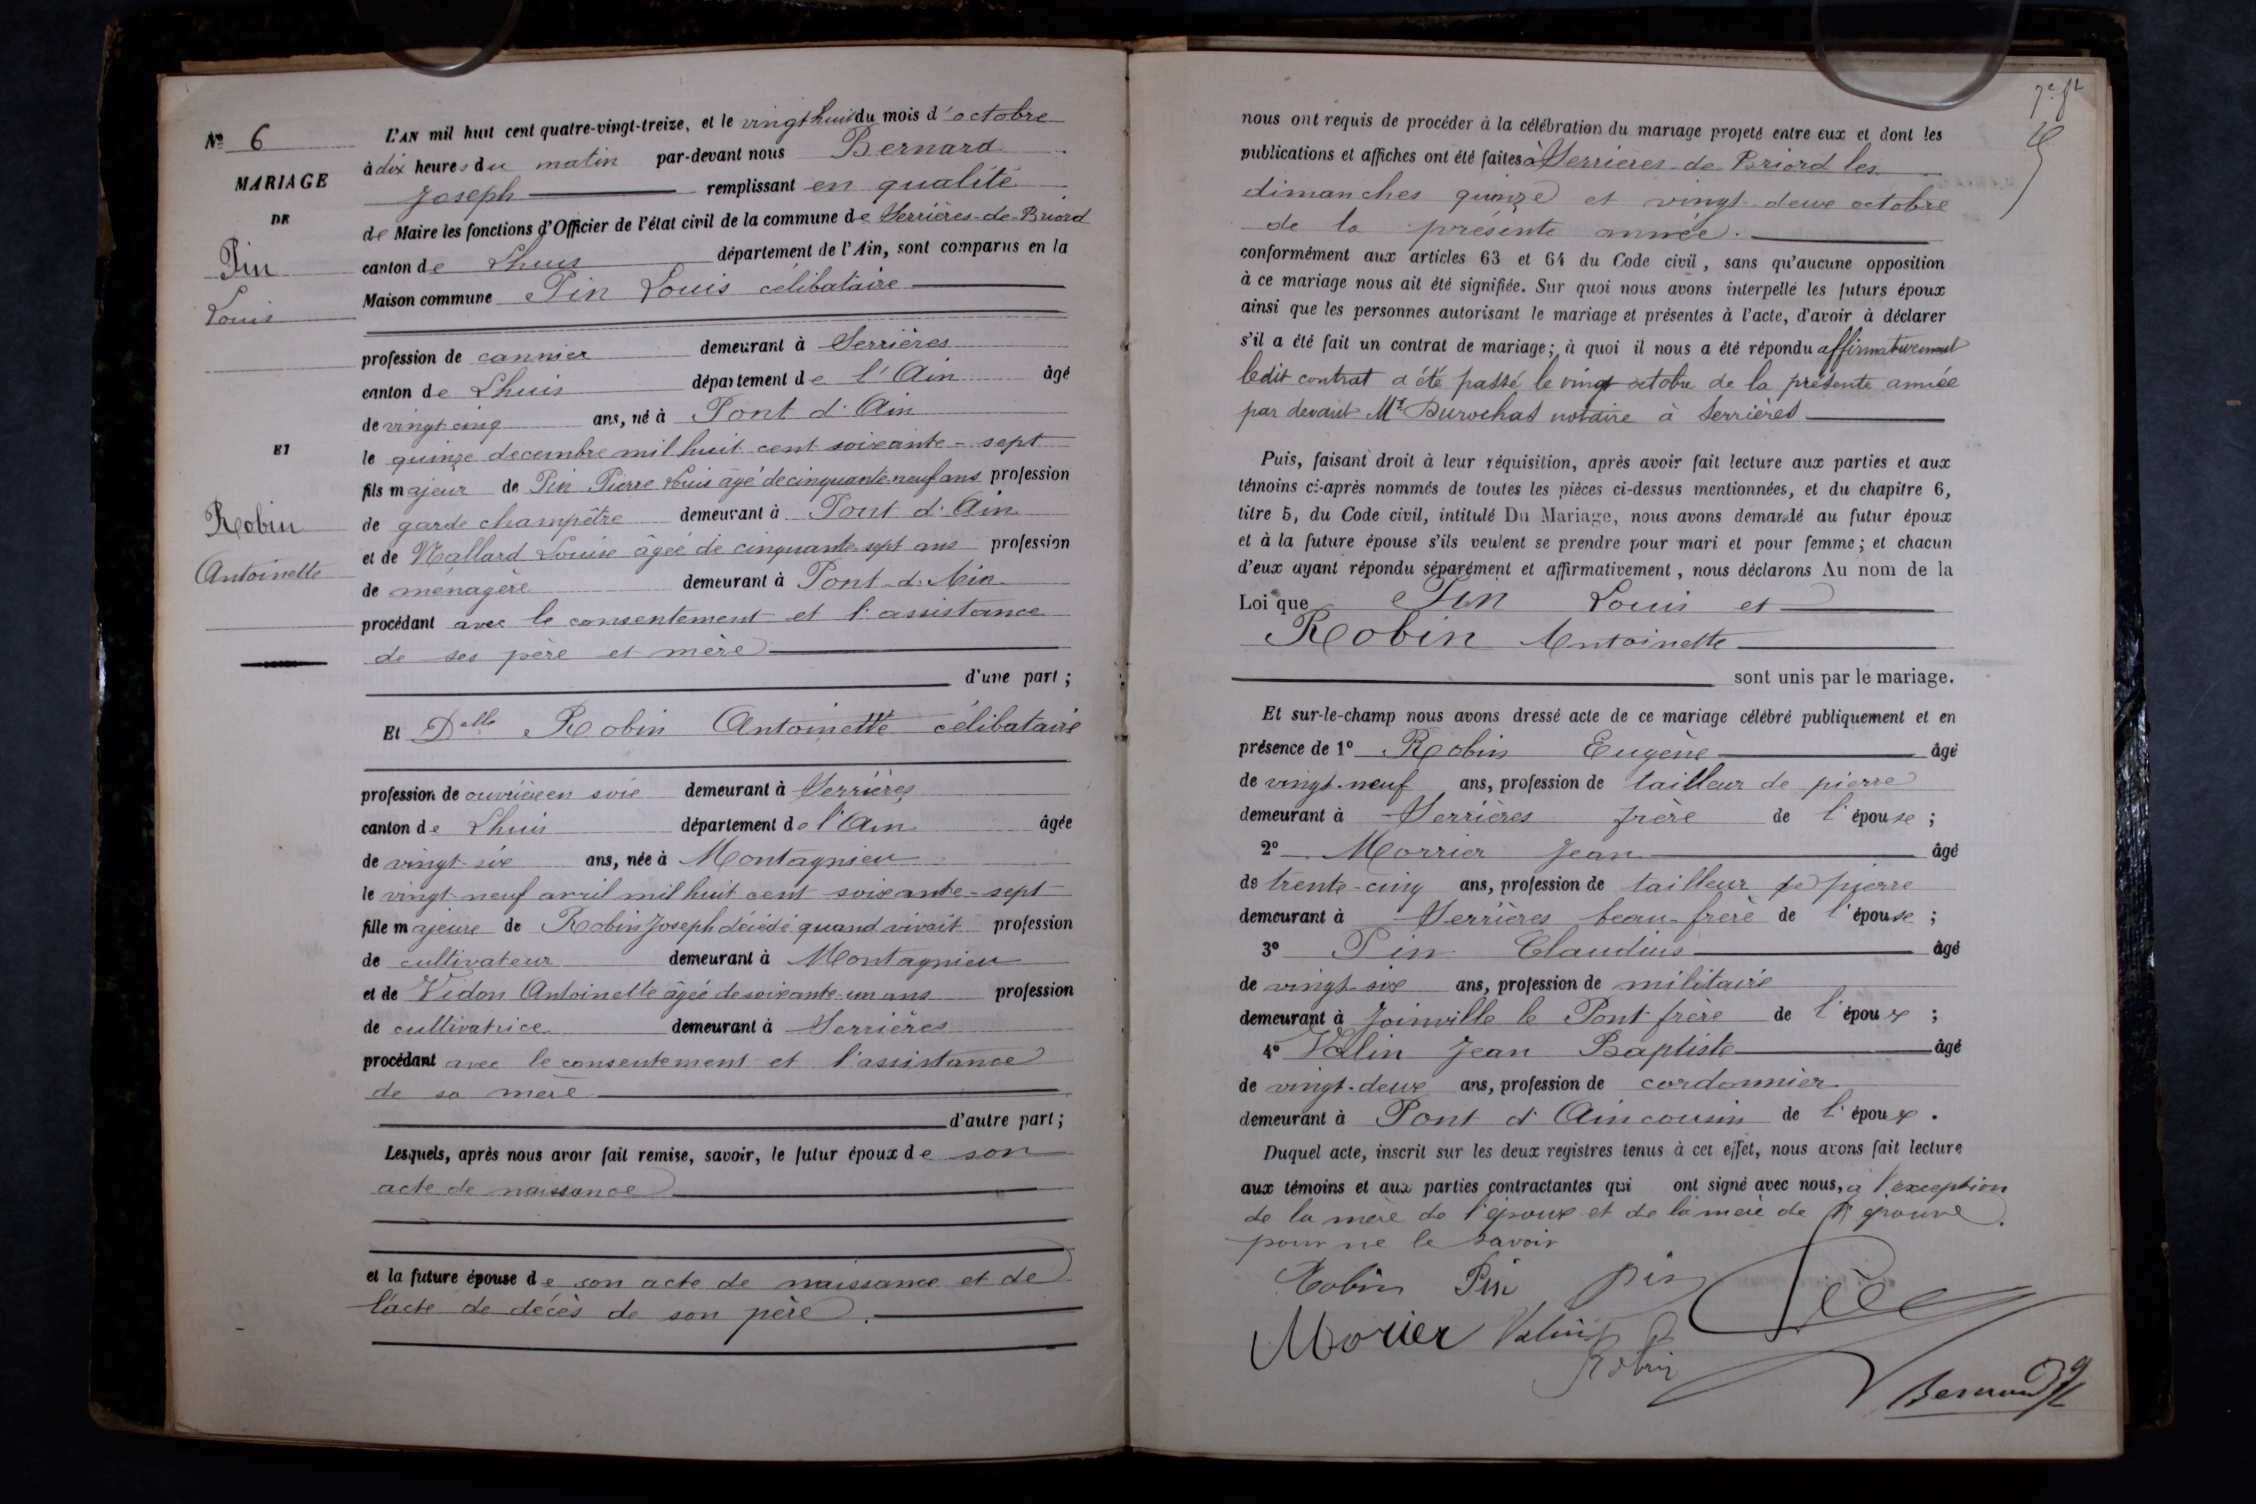 Nº 6
MARIAGE
DE
Pin
Louis
ET
Robin
Antoinette
L'AN mil huit cent quatre-vingt-treize, et le vingt huit du mois d'octobre
à dix heures du matin par-devant nous Bernard
Joseph remplissant en qualité
de Maire les fonctions d'Officier de l'état civil de la commune de Serrières-de-Briord
canton de Lhuis département de l'Ain, sont comparus en la
Maison commune Pin Louis célibataire
profession de cannier demeurant à Serrières
canton de Lhuis département de l'Ain âgé
de vingt cinq ans, né à Pont d'Ain
le quinze decembre mil huit cent soixante-sept
fils majeur de Pin Pierre Louis âgé de cinquante neuf ans profession
de garde champêtre demeurant à Pont d'Ain
et de Mallard Louise âgée de cinquante sept ans profession
de ménagère demeurant à Pont d'Ain
procédant avec le consentement et l'assistance
de ses père et mère
d'une part ;
Et Delle Robin Antoinette célibataire
profession de ouvrière en soie demeurant à Serrières
canton de Lhuis département de l'Ain âgée
de vingt-six ans, née à Montagnieu
le vingt-neuf avril mil huit cent soixante-sept
fille majeure de Robin Joseph décédé quand vivait profession
de cultivateur demeurant à Montagnieu
et de Vidon Antoinette âgée de soixante-un ans profession
de cultivatrice demeurant à Serrières
procédant avec le consentement et l'assistance
de sa mère
d'autre part ;
Lesquels, après nous avoir fait remise, savoir, le futur époux de son
acte de naissance
et la future épouse de son acte de naissance et de
l'acte de décès de son père.
7e ft
nous ont requis de procéder à la célébration du mariage projeté entre eux et dont les
publications et affiches ont été faites à Serrières-de-Briord les
dimanches quinze et vingt-deux octobre
de la présente année.
conformément aux articles 63 et 64 du Code civil, sans qu'aucune opposition
à ce mariage nous ait été signifiée. Sur quoi nous avons interpellé les futurs époux
ainsi que les personnes autorisant le mariage et présentes à l'acte, d'avoir à déclarer
s'il a été fait un contrat de mariage ; à quoi il nous a été répondu affirmativement
ledit contrat a été passé le vingt octobre de la présente année
par devant Me Durochat notaire à Serrières
Puis, faisant droit à leur réquisition, après avoir fait lecture aux parties et aux
témoins ci-après nommés de toutes les pièces ci-dessus mentionnées, et du chapitre 6,
titre 5, du Code civil, intitulé Du Mariage, nous avons demandé au futur époux
et à la future épouse s'ils veulent se prendre pour mari et pour femme ; et chacun
d'eux ayant répondu séparément et affirmativement, nous déclarons Au nom de la
Loi que Pin Louis et
Robin Antoinette
sont unis par le mariage.
Et sur-le-champ nous avons dressé acte de ce mariage célébré publiquement et en
présence de 1º Robin Eugène âgé
de vingt-neuf ans, profession de tailleur de pierre
demeurant à Serrières frère de l'épouse ;
2º Morrier Jean âgé
de trente-cinq ans, profession de tailleur de pierre
demeurant à Serrières beau-frère de l'épouse ;
3º Pin Claudius âgé
de vingt-six ans, profession de militaire
demeurant à Joinville le Pont frère de l'époux ;
4º Vallin Jean Baptiste âgé
de vingt-deux ans, profession de cordonnier
demeurant à Pont d'Ain cousin de l'époux.
Duquel acte, inscrit sur les deux registres tenus à cet effet, nous avons fait lecture
aux témoins et aux parties contractantes qui ont signé avec nous, à l'exception
de la mère de l'époux et de la mère de l'épouse
pour ne le savoir
Robin Pin Pin
Morier Valin
Robin
Bernard